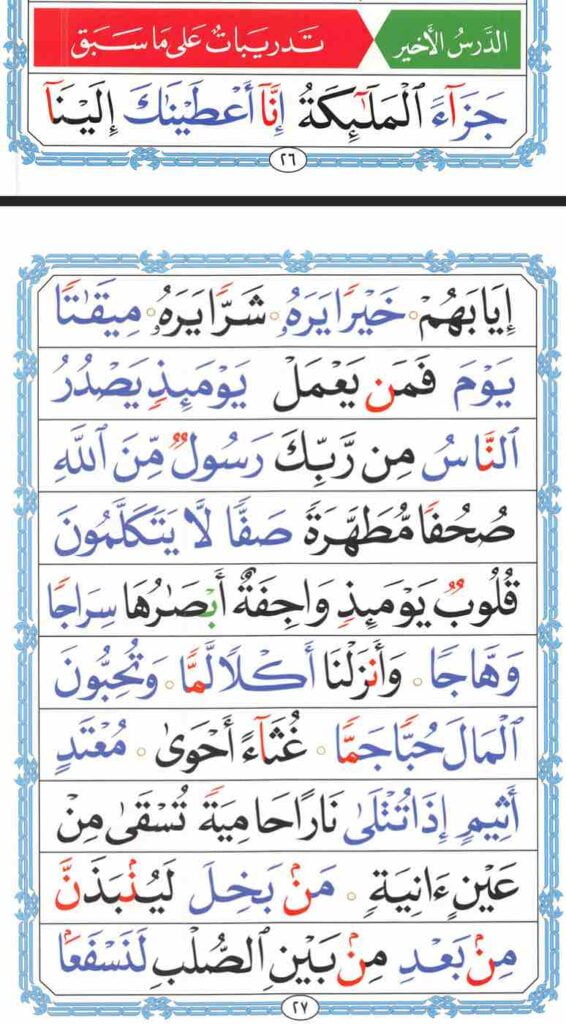 الدَّرسُ الأَخير
تَدريباتٌ عَلى مَا سَبَق
جَزَآءً ٱلْمَلَٰٓئِكَةُ إِنَّآ أَعْطَيْنَٰكَ إِلَيْنَآ
٢٦
إِيَابَهُمْ خَيْرًا يَرَهُۥ شَرًّا يَرَهُۥ مِيقَٰتًا
يَوْمَ فَمَن يَعْمَلْ يَوْمَئِذٍ يَصْدُرُ
ٱلنَّاسُ مِن رَّبِّكَ رَسُولٌ مِّنَ ٱللَّهِ
صُحُفًا مُّطَهَّرَةً صَفًّا لَّا يَتَكَلَّمُونَ
قُلُوبٌ يَوْمَئِذٍ وَاجِفَةٌ أَبْصَٰرُهَا سِرَاجًا
وَهَّاجًا وَأَنزَلْنَا أَكْلًا لَّمًّا وَتُحِبُّونَ
ٱلْمَالَ حُبًّا جَمًّا غُثَآءً أَحْوَىٰ مُعْتَدٍ
أَثِيمٍ إِذَا تُتْلَىٰ نَارًا حَامِيَةً تُسْقَىٰ مِنْ
عَيْنٍ ءَانِيَةٍ مَنۢ بَخِلَ لَيُنۢبَذَنَّ
مِنۢ بَعْدِ مِنۢ بَيْنِ ٱلصُّلْبِ لَنَسْفَعًۢا
٢٧